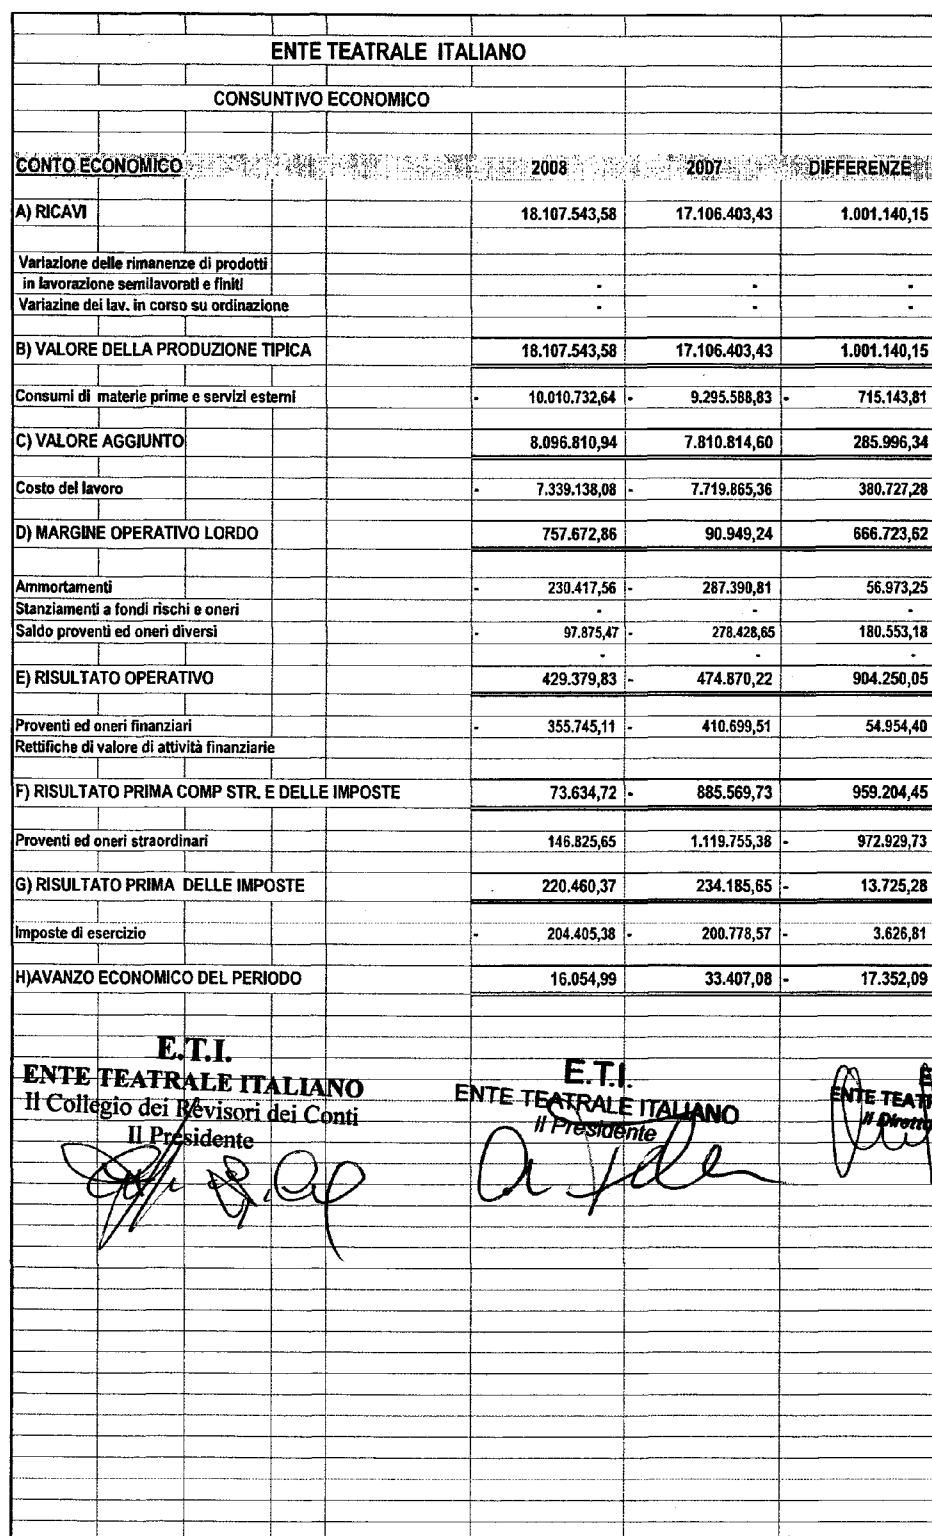 ENTE TEATRALE ITALIANO
CONSUNTIVO ECONOMICO
CONTO ECONOMICO 2008 2007 DIFFERENZE
A) RICAVI 18.107.543,58 17.106.403,43 1.001.140,15
Variazione delle rimanenze di prodotti
in lavorazione semilavorati e finiti - - -
Variazine dei lav. in corso su ordinazione - - -
B) VALORE DELLA PRODUZIONE TIPICA 18.107.543,58 17.106.403,43 1.001.140,15
Consumi di materie prime e servizi esterni - 10.010.732,64 - 9.295.588,83 - 715.143,81
C) VALORE AGGIUNTO 8.096.810,94 7.810.814,60 285.996,34
Costo del lavoro - 7.339.138,08 - 7.719.865,36 380.727,28
D) MARGINE OPERATIVO LORDO 757.672,86 90.949,24 666.723,62
Ammortamenti - 230.417,56 - 287.390,81 56.973,25
Stanziamenti a fondi rischi e oneri - - -
Saldo proventi ed oneri diversi - 97.875,47 - 278.428,65 180.553,18
- - -
E) RISULTATO OPERATIVO 429.379,83 - 474.870,22 904.250,05
Proventi ed oneri finanziari - 355.745,11 - 410.699,51 54.954,40
Rettifiche di valore di attività finanziarie
F) RISULTATO PRIMA COMP STR. E DELLE IMPOSTE 73.634,72 - 885.569,73 959.204,45
Proventi ed oneri straordinari 146.825,65 1.119.755,38 - 972.929,73
G) RISULTATO PRIMA DELLE IMPOSTE 220.460,37 234.185,65 - 13.725,28
Imposte di esercizio - 204.405,38 - 200.778,57 - 3.626,81
H)AVANZO ECONOMICO DEL PERIODO 16.054,99 33.407,08 - 17.352,09
E.T.I.
ENTE TEATRALE ITALIANO
Il Collegio dei Revisori dei Conti
Il Presidente
E.T.I.
ENTE TEATRALE ITALIANO
Il Presidente
ENTE TEAT
Il Diretto